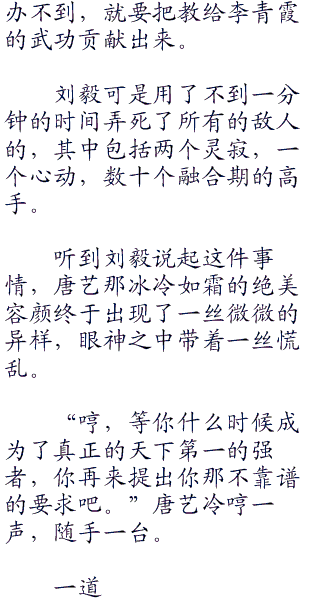 办不到，就要把教给李青霞
的武功贡献出来。
刘毅可是用了不到一分
钟的时间弄死了所有的敌人
的，其中包括两个灵寂，一
个心动，数十个融合期的高
手。
听到刘毅说起这件事
情，唐艺那冰冷如霜的绝美
容颜终于出现了一丝微微的
异样，眼神之中带着一丝慌
乱。
“哼，等你什么时候成
为了真正的天下第一的强
者，你再来提出你那不靠谱
的要求吧。”唐艺冷哼一
声，随手一台。
一道